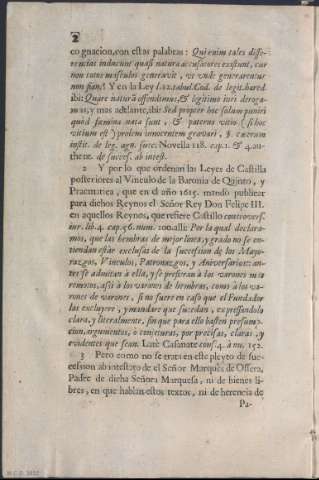 2
cognacion, con estas palabras: Qui enim tales diffe-
rencias inducunt quasi naturæ accusatores existunt, cur
non totos masculos generavit, vt vnde generarentur
non fiant? Y en la Ley l. 12. tabul. Cod. de legit. hæred.
ibi: Quare naturã offendimus, & legitimo iuri deroga-
mus, y mas adelante, ibi: Sed proper hoc solum puniri
quòd fæmina nata sunt, & paterno vitio (si hoc
vitium est) prolem innocentem gravari, §. cæterum
instit. de leg. agn. succ. Novella 118. cap. 1. & 4. au-
thent. de succes. ab intest.
2 Y por lo que ordenan las Leyes de Castilla
posteriores al Vinculo de la Baronia de Quinto, y
Pracmatica, que en el año 1615. mandò publicar
para dichos Reynos el Señor Rey Don Felipe III.
en aquellos Reynos, que refiere Castillo controvers.
iur. lib. 4. cap. 56. num. 100. alli: Por la qual declara-
mos, que las hembras de mejor linea, y grado no se en-
tiendan estàr exclusas de la succession de los Mayo-
razgos, Vinculos, Patronazgos, y Aniversarios: an-
tes se admitan à ella, y se prefieran à los varones mas
remotos, assi à los varones de hembras, como à los va-
rones de varones, si no fuere en caso que el Fundador
las excluyere, y mandare que sucedan, expressandolo
clara, y literalmente, sin que para ello basten presump-
cion, argumentos, ò conjeturas, por precisas, claras, y
evidentes que sean. Latè Casanate cons. 4. à nu. 152.
3 Pero como no se trata en este pleyto de suc-
cession ab intestato de el Señor Marquès de Ossera,
Padre de dicha Señora Marquesa, ni de bienes li-
bres, en que hablan estos textos, ni de herencia de
Pa-